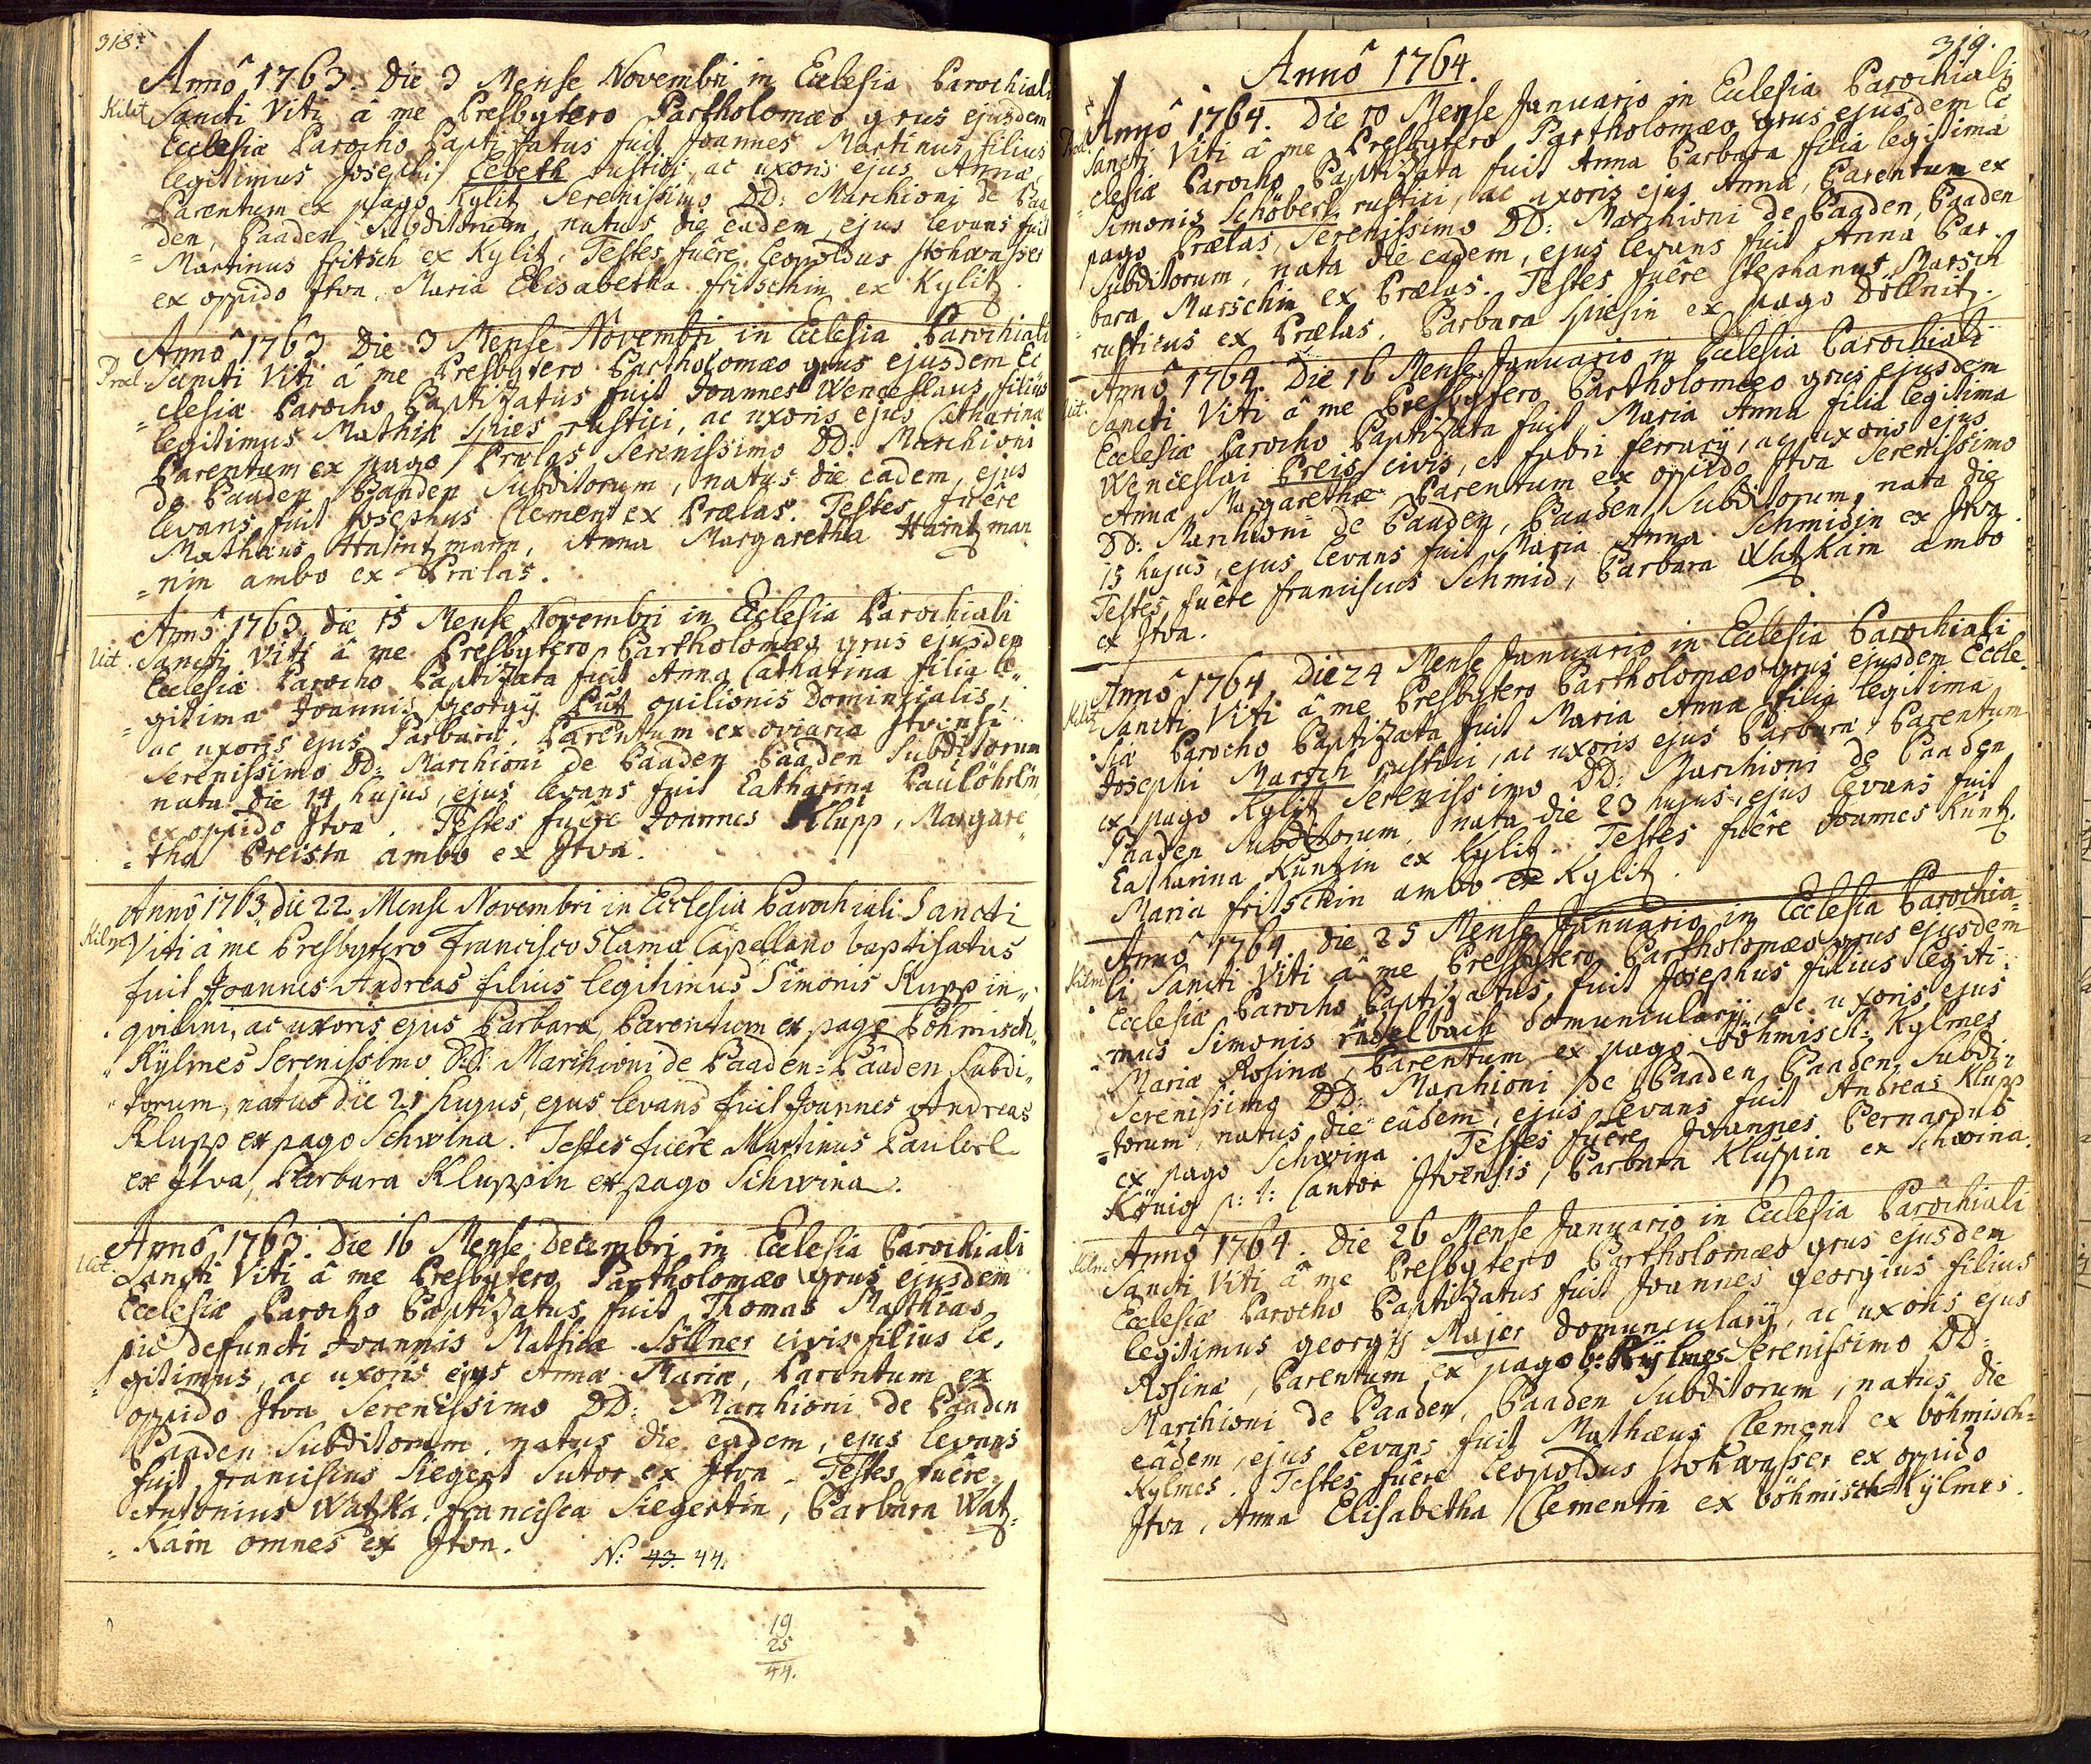 318.
Anno 1763. Die 3 Mense Novembri in Ecclesia Parochiali
Kilit Sancti Viti â me Presbytero Bartholomæo grus ejusdem
Ecclesiæ Parocho Baptisatus fuit Joannes Martinus filius
legitimus Josephi Lebeth rustici, ac uxoris ejus Annæ,
Parentum ex pago Kylitz Serenissimo DD: Marchioni de Baa
den, Baaden Subditorum, natus die eadem, ejus levans fuit
= Martinus fritsch ex Kylitz. Testes fuêre Leopoldus Stohwasser
ex oppido Itva, Maria Elisabetha fritschin ex Kylitz.
Anno 1763 Die 3 Mense Novembri in Ecclesia Parochiali
Prœl. Sancti Viti â me Presbytero Bartholomæo grus ejusdem Ec
= clesiæ Parocho Baptizatus fuit Joannes Wenceslaus filius
legitimus Mathiæ Spies rustici, ac uxoris ejus Catharinæ
Parentum ex pago Prœlas Serenissimo DD: Marchioni
de Baaden Baaden Subditorum, natus die eadem, ejus
levans fuit Josephus Clement ex Prœlas. Testes fuêre
Mathæus Haintzmann, Anna Margaretha Haintzman
= nin ambo ex Prœlas.
Anno 1763 die 15 Mense Novembri in Ecclesia Parochiali
Uit. Sancti Viti â me Presbytero Bartholomæo grus ejusdem
Ecclesiæ Parocho Baptizata fuit Anna Catharina filia le=
= gitima Joannis georgÿ Put opilionis Dominicalis,
ac uxoris ejus Barbaræ Parentum ex oviaria Itvensi
Serenissimo DD: Marchioni de Baaden Baaden Subditorum
nata die 14 hujus, ejus levans fuit Catharina Paulöhrlin
ex oppido Itva. Testes fuêre Joannes Klupp, Margare
= tha Preisin ambo ex Itva.
Anno 1763 die 22. Mense Novembri in Ecclesia Parochiali Sancti
Kilm. Viti â me Presbytero Francisco Slama Capellano baptisatus
fuit Joannes Andreas filius legitimus Simonis Kupp in=
quilini, ac uxoris ejus Barbaræ, Parentum ex pago Böhmisch
Kÿlmes Serenissimo DD: Marchioni de Baaden=Baaden Subdi
torum, natus die 21 hujus, ejus levans fuit Joannes Andreas
Klupp ex pago Schwina. Testes fuêre Martinus Lauberl
ex Itva, Barbara Kluppin ex pago Schwina.
Anno 1763. Die 16 Mense Decembri in Ecclesia Parochiali
Uit. Sancti Viti â me Presbytero Bartholomæo grus ejusdem
Ecclesiæ Parocho Baptizatus fuit Thomas Mathias
piè defuncti Joannis Mathiæ Söllner civis filius le=
= gitimus, ac uxoris ejus Annæ Mariæ, Parentum ex
oppido Itva Serenissimo DD: Marchioni de Baaden
Baaden Subditorum, natus die eadem, ejus levans
fuit franciscus Siegert Sutor ex Itva. Testes fuêre
Antonius Watzka, francisca Siegertin, Barbara Watz=
= kain omnes ex Itva.
N: 43. 44.
19
25
44.
319.
Anno 1764.
Anno 1764. Die 10 Mense Januario in Ecclesia Parochiali
Prœl. Sancti Viti â me Presbytero Bartholomæo grus ejusdem Ec
= clesiæ Parocho Baptizata fuit Anna Barbara filia legitima
Simonis Schöberl rustici, ac uxoris ejus Annæ, Parentum ex
pago Prœlas, Serenissimo DD: Marchioni de Baaden, Baaden
Subditorum, nata die eadem, ejus levans fuit Anna Bar=
= bara Marschin ex Prœlas. Testes fuêre Stephanus Marsch
rusticus ex Prœlas, Barbara Spiesin ex pago Döllnitz.
Anno 1764. Die 16 Mense Januario in Ecclesia Parochiali
Uit. Sancti Viti â me Presbytero Bartholomæo grus ejusdem
Ecclesiæ Parocho Baptizata fuit Maria Anna filia legitima
Wenceslai Preis civis, et fabri ferrarÿ, ac uxoris ejus
Annæ Margarethæ Parentum ex oppido Itva Serenissimo
DD: Marchioni de Baaden, Baaden Subditorum, nata die
15 hujus, ejus levans fuit Maria Anna Schmidin ex Itva.
Testes fuêre franciscus Schmid, Barbara Watzkain ambo
ex Itva.
Anno 1764 Die 24 Mense Januario in Ecclesia Parochiali
Kilit Sancti Viti â me Presbytero Bartholomæo grus ejusdem Eccle=
= siæ Parocho Baptizata fuit Maria Anna filia legitima
Josephi Marsch rustici, ac uxoris ejus Barbaræ, Parentum
ex pago Kylitz Serenissimo DD: Marchioni de Baaden
Baaden Subditorum, nata die 23 hujus, ejus levans fuit
Catharina Kuntzin ex Kylitz. Testes fuêre Joannes Kuntz,
Maria fritschin ambo ex Kylitz.
Anno 1764 die 25 Mense Januario in Ecclesia Parochia=
Kilm. li Sancti Viti â me Presbytero Bartholomæo grus ejusdem
Ecclesiæ Parocho Baptizatus fuit Josephus filius legiti=
= mus Simonis rudelbach Domuncularÿ, ac uxoris ejus
Mariæ Rosinæ, Parentum ex pago Böhmisch: Kylmes
Serenissimo DD: Marchioni de Baaden Baaden Subdi=
= torum, natus die eâdem, ejus levans fuit Andreas Klupp
ex pago Schwina. Testes fuêre Joannes Bernardus
König p: t: Cantor Itvensis, Barbara Kluppin ex Schwina.
Anno 1764. Die 26 Mense Januario in Ecclesia Parochiali
Kilm. Sancti Viti â me Presbytero Bartholomæo grus ejusdem
Ecclesiæ Parocho Baptizatus fuit Joannes georgius filius
legitimus georgÿ Majer Domuncularÿ, ac uxoris ejus
Rosinæ, Parentum ex pago b: Kÿlmes Serenissimo DD:
Marchioni de Baaden, Baaden Subditorum, natus die
eâdem, ejus levans fuit Mathæus Clement ex böhmisch=
Kylmes. Testes fuêre Leopoldus Stohwasser ex oppido
Itva, Anna Elisabetha Clementin ex böhmisch=Kÿlmes.